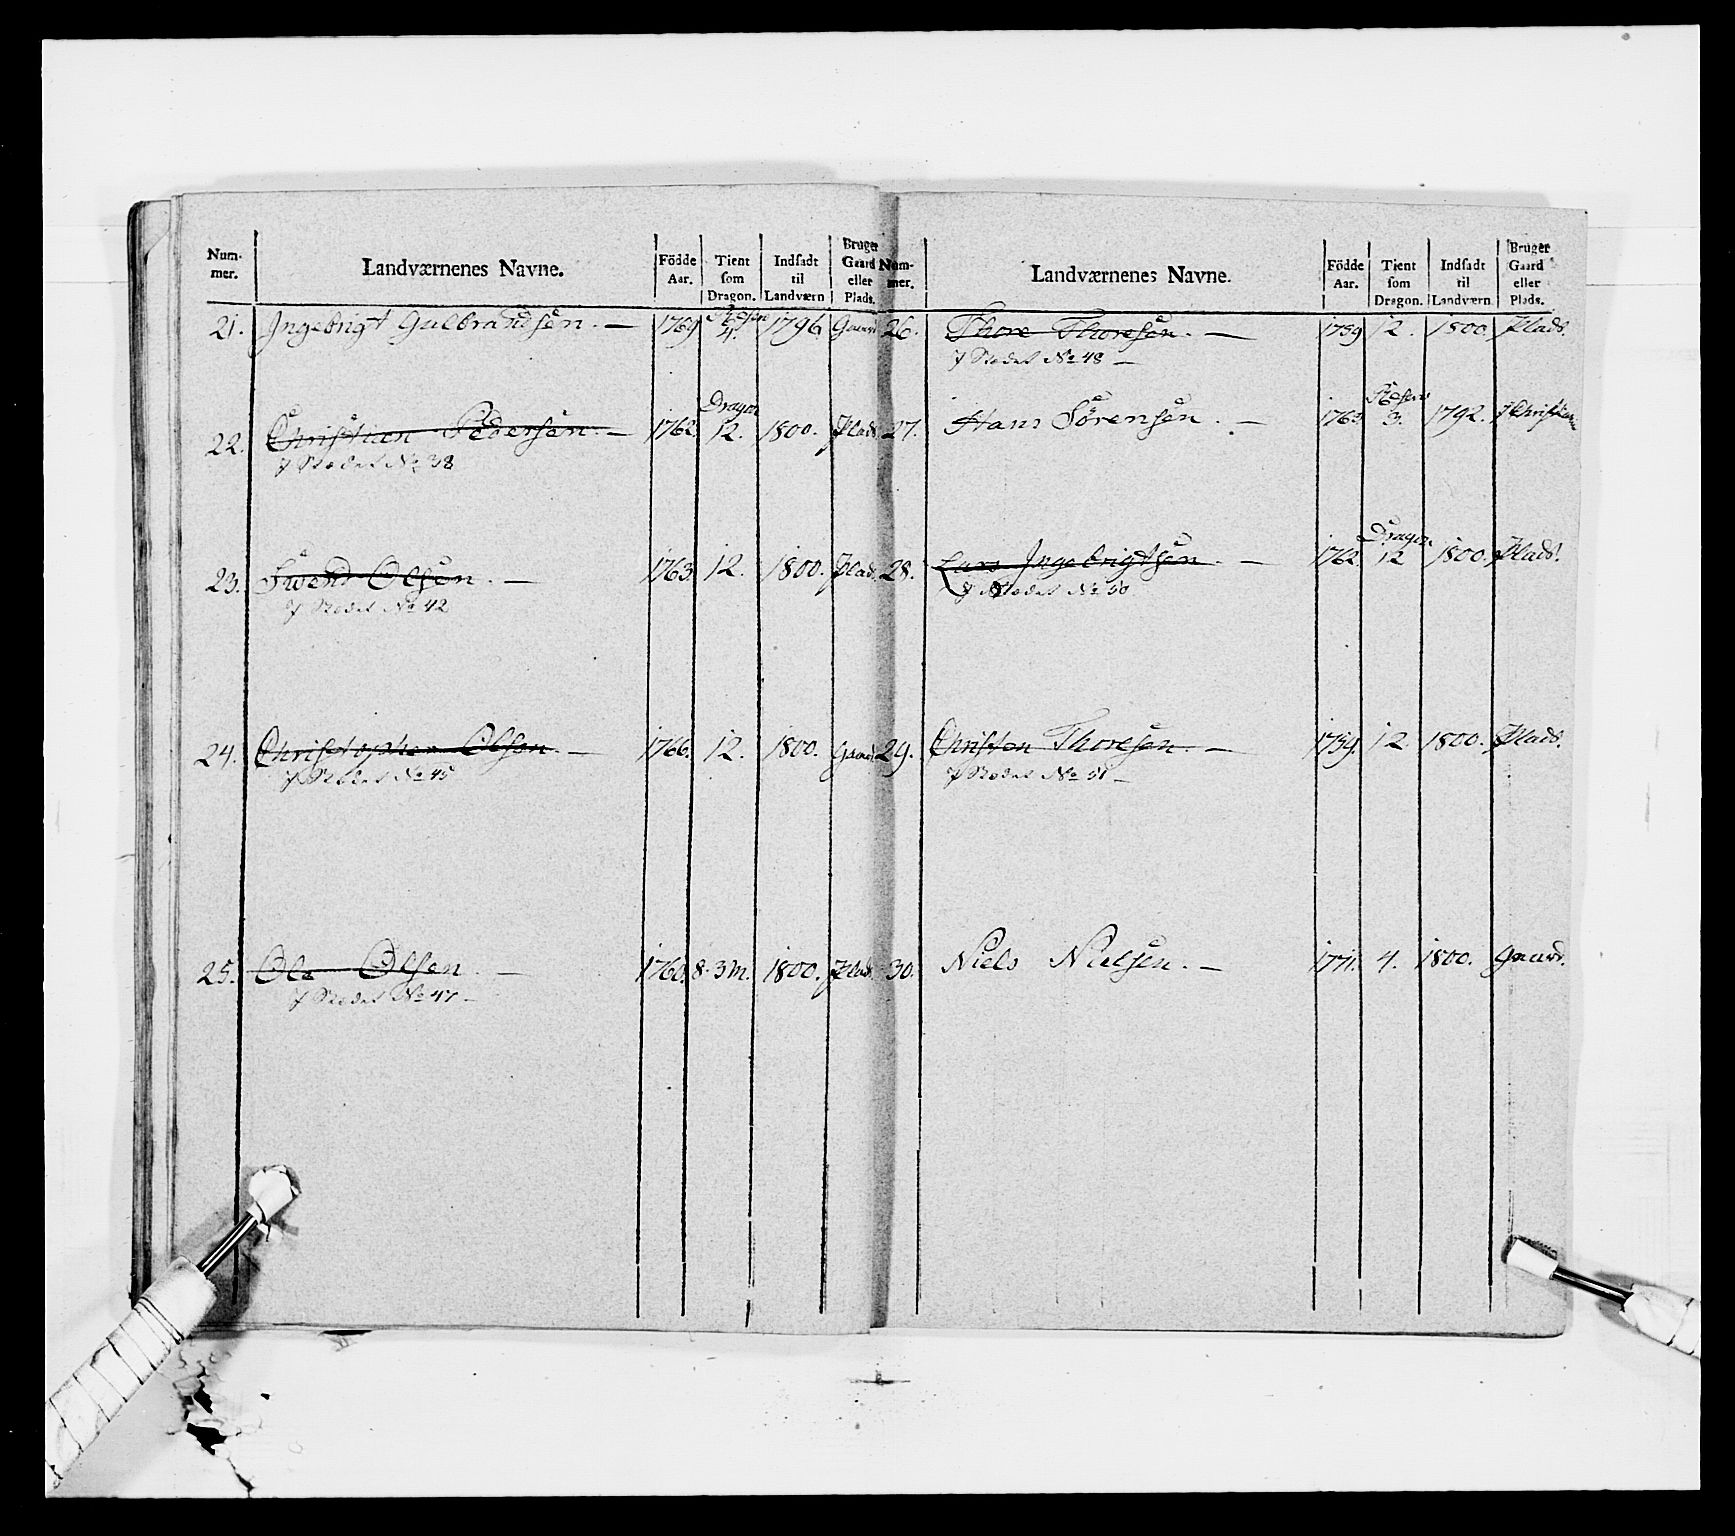 Num- Landværnenes Navne. Födde Tient Indsadt Bruger
mer. Aar. som til Gaard
Dragon. Landværn eller
Plads.
21. Ingebrigt Gulbrandsen. — 1769 4. 1796 Gaard
Dragon
22. Christian Pedersen. — 1762 12. 1800. Plads.
I Stedet No 38
23. Svend Olsen. — 1763 12. 1800. Plads.
I Stedet No 42
24. Christopher Olsen. — 1766. 12. 1800. Gaard
I Stedet No 45
25. Ole Olsen. — 1760. 8. 3 m. 1800. Plads.
I Stedet No 47 —
Num- Landværnenes Navne. Födde Tient Indsadt Bruger
mer. Aar. som til Gaard
Dragon. Landværn eller
Plads.
26. Thore Thoresen. — 1759 12. 1800. Plads.
I Stedet No 48 —
27. Hans Sörensen. — 1763 3. 1792.
Dragon
28. Lars Ingebrigtsen. — 1762. 12 1800. Plads.
I Stedet No 50
29. Christen Thoresen. — 1759. 12. 1800. Plads.
I Stedet No 51 —
30. Niels Nielsen. — 1771. 4. 1800. Gaard.